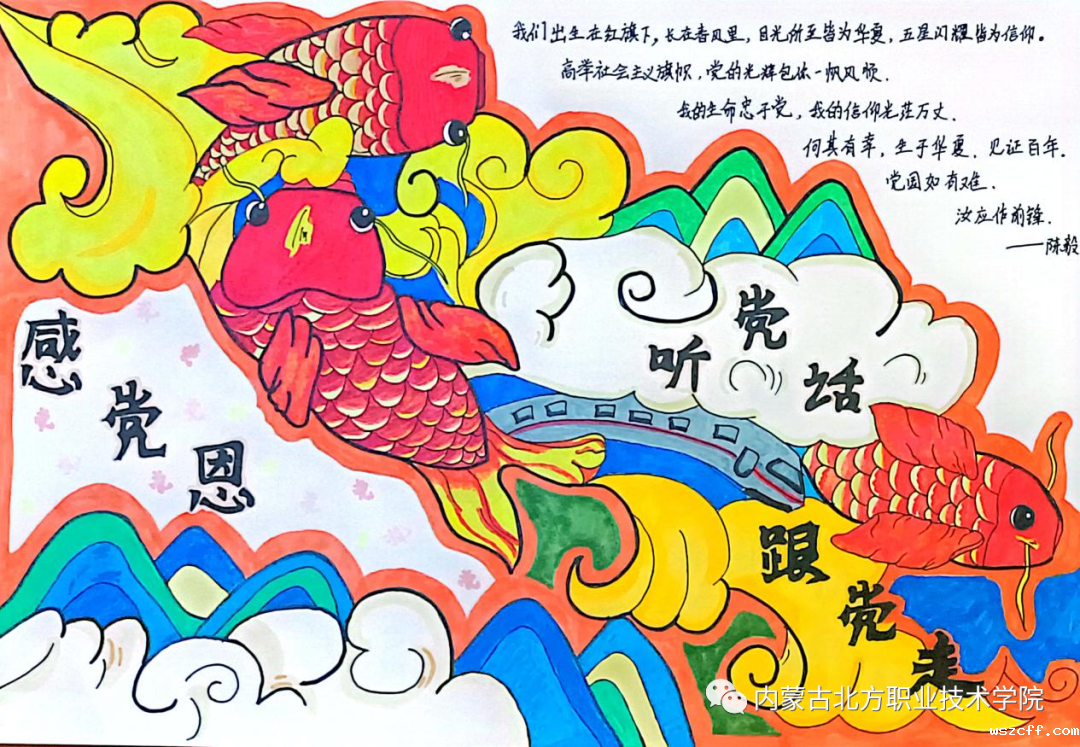 我们出生在红旗下，长在春风里，目光所至皆为华夏，五星闪耀皆为信仰。
高举社会主义旗帜，党的光辉包依一帆风顺．
我的生命忠于党，我的信仰光茫万丈．
何其有幸，生于华夏．见证百年．
党国如有难．
汝应作前锋．
——陈毅
感党恩
听党话
跟党走
内蒙古北方职业技术学院
wszcff.com